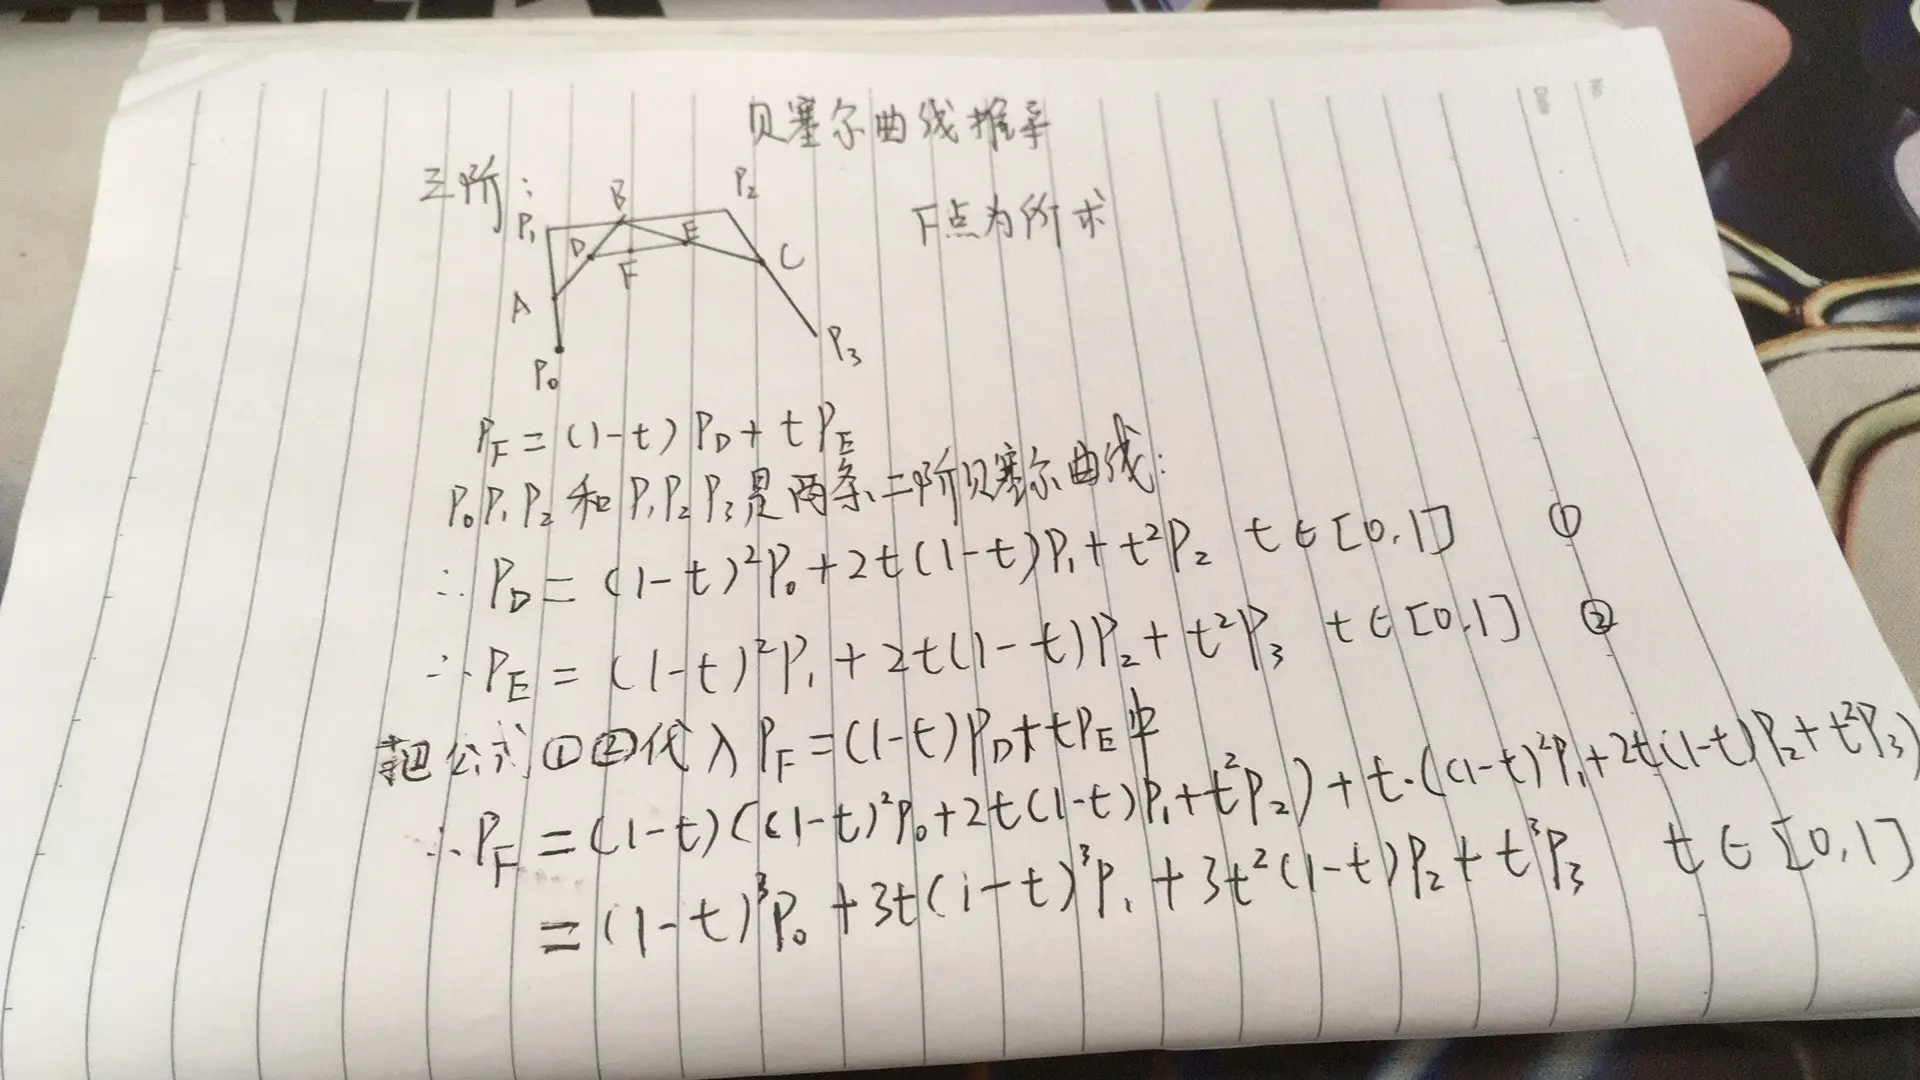 贝塞尔曲线推导
三阶:
F点为所求
P₁ B P₂
D E
F C
A
P₀ P₃
P_F = (1-t) P_D + t P_E
P₀P₁P₂ 和 P₁P₂P₃是两条二阶贝塞尔曲线:
∴ P_D = (1-t)²P₀ + 2t(1-t)P₁ + t²P₂ t∈[0,1] ①
∴ P_E = (1-t)²P₁ + 2t(1-t)P₂ + t²P₃ t∈[0,1] ②
把公式①②代入 P_F = (1-t)P_D + tP_E 中
∴ P_F = (1-t)((1-t)²P₀ + 2t(1-t)P₁ + t²P₂) + t·((1-t)²P₁ + 2t(1-t)P₂ + t²P₃)
= (1-t)³P₀ + 3t(1-t)³P₁ + 3t²(1-t)P₂ + t³P₃ t∈[0,1]